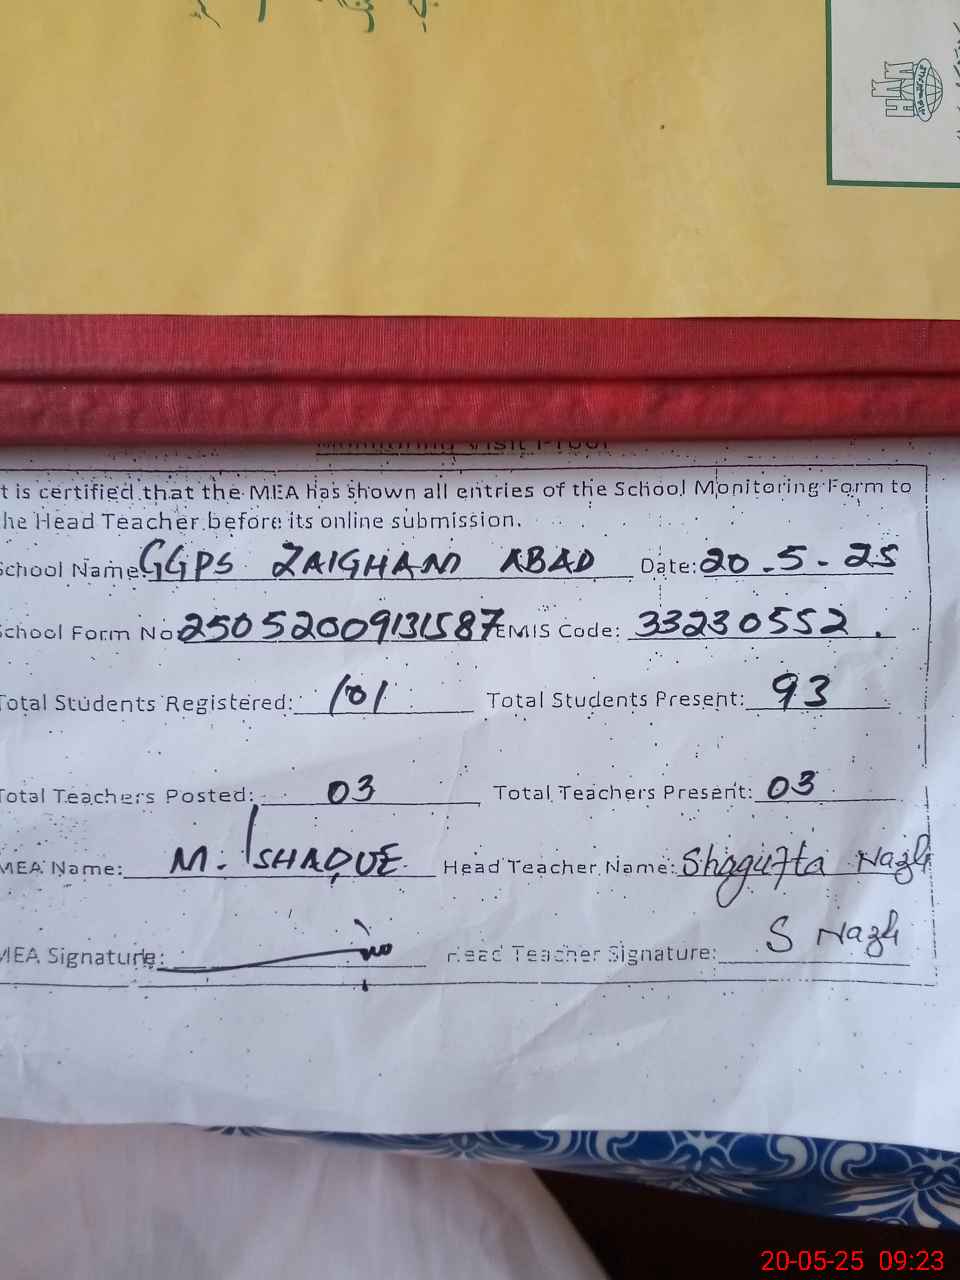 Monitoring Visit Proof
t is certified that the MEA has shown all entries of the School Monitoring Form to
he Head Teacher before its online submission.
School Name GGPS ZAIGHAM ABAD Date: 20.5-25
School Form No 25052009131587 EMIS Code: 33230552.
Total Students Registered: 101 Total Students Present: 93
Total Teachers Posted: 03 Total Teachers Present: 03
MEA Name: M. ISHAQUE Head Teacher Name: Shagufta Nazli
MEA Signature: Head Teacher Signature: S Nazli
20-05-25 09:23